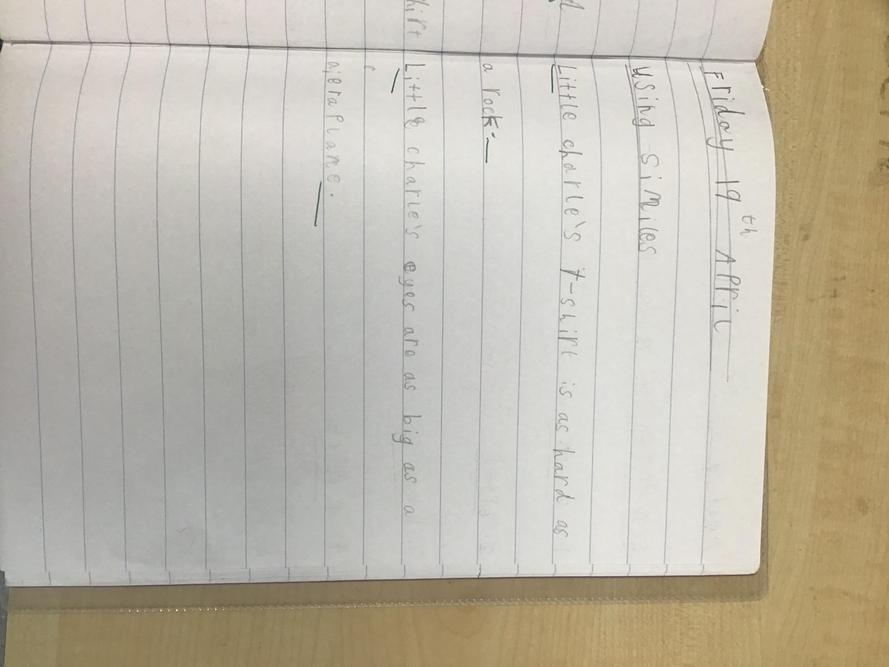 Friday 19th April
Using Similes
Little charle's t-shirt is as hard as
a rock.
Little charle's eyes are as big as a
aieraplane.